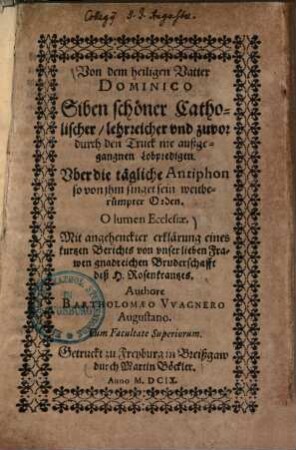 Collegij S. J. Augustae.
Von dem heiligen Vatter
DOMINICO
Siben schöner Catho-
lischer / lehrreicher vnd zuvor
durch den Truck nie außge-
gangnen Lobpredigen.
Vber die tägliche Antiphon
so von jhm singet sein weitbe-
rümpter Orden.
O lumen Ecclesiæ.
Mit angehenckter erklärung eines
kurtzen Berichts von vnser lieben Fra-
wen gnadreichen Bruderschafft
deß H. Rosenkrantzes.
Authore
BARTHOLOMÆO VVAGNERO
Augustano.
Cum Facultate Superiorum.
Getruckt zu Freyburg in Breißgaw
durch Martin Böckler.
Anno M. DCIX.